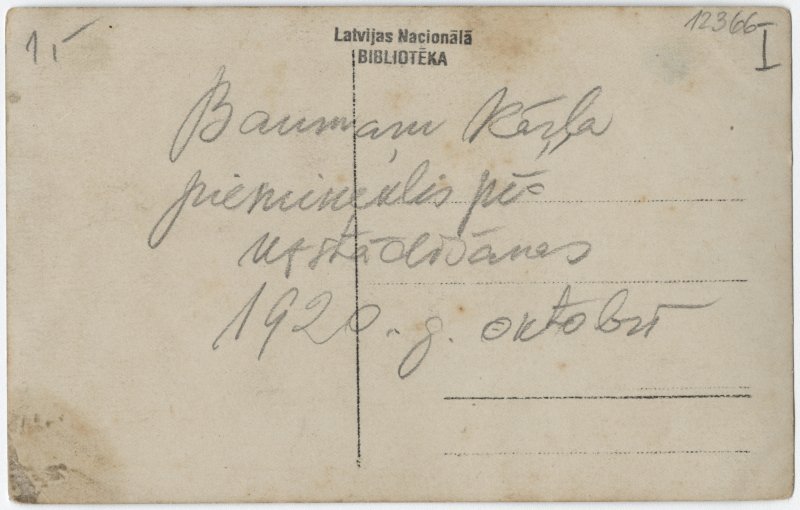 1,-
Latvijas Nacionālā
BIBLIOTĒKA
12366
I
Baumaņu Kārļa
piemineklis pēc
uzstādīšanas
1920. g. oktobrī